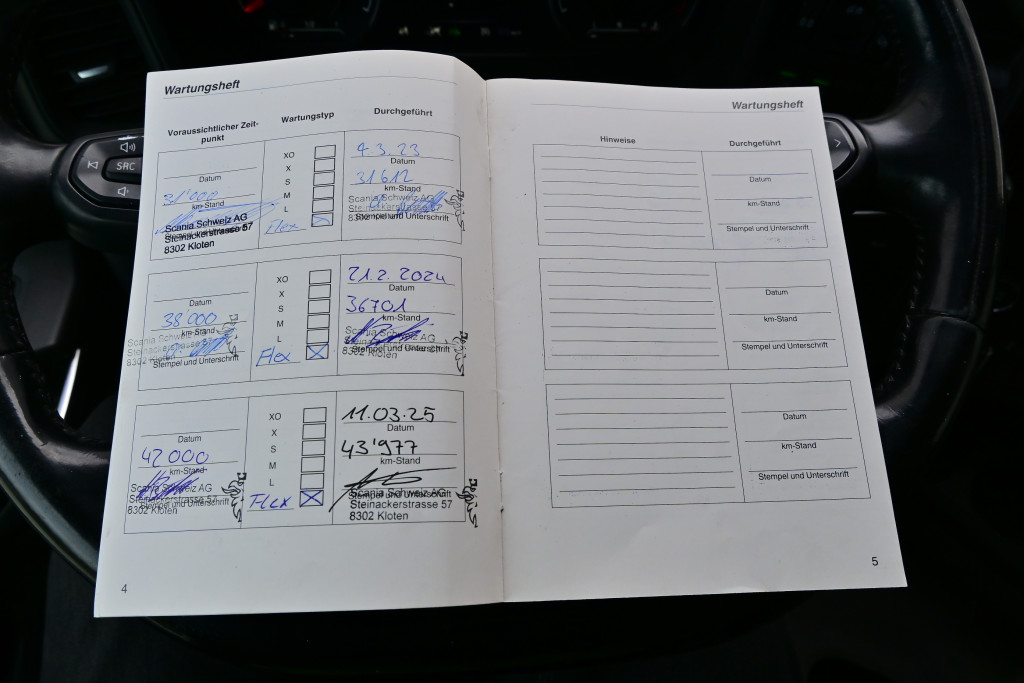 Wartungsheft
Voraussichtlicher Zeit-
punkt
Wartungstyp
Durchgeführt
Datum
31'000
km-Stand
Scania Schweiz AG
Steinackerstrasse 57
8302 Kloten
XO
X
S
M
L
Flex
4.3.23
Datum
31612
km-Stand
Scania Schweiz AG
Steinackerstrasse 57
Stempel und Unterschrift
8302 Kloten
Datum
38'000
km-Stand
Scania Schweiz AG
Steinackerstrasse 57
Stempel und Unterschrift
8302 Kloten
XO
X
S
M
L
Flex
21.2.2024
Datum
36701
km-Stand
Scania Schweiz AG
Steinackerstrasse 57
Stempel und Unterschrift
8302 Kloten
Datum
42000
km-Stand
Scania Schweiz AG
Steinackerstrasse 57
Stempel und Unterschrift
8302 Kloten
XO
X
S
M
L
Flex
11.03.25
Datum
43'977
km-Stand
Scania Schweiz AG
Stempel und Unterschrift
Steinackerstrasse 57
8302 Kloten
4
Wartungsheft
Hinweise
Durchgeführt
Datum
km-Stand
Stempel und Unterschrift
Datum
km-Stand
Stempel und Unterschrift
Datum
km-Stand
Stempel und Unterschrift
5
SRC